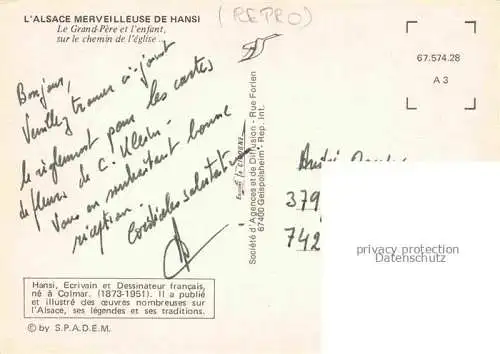 (RETRO)
L'ALSACE MERVEILLEUSE DE HANSI
Le Grand-Père et l'enfant,
sur le chemin de l'église...
67.574.28
A 3
Bonjour,
Veuillez trouver ci-joint
le règlement pour les cartes
de fleurs de C. Klein.
Vous en souhaitant bonne
réception.
Cordiales salutations
Société d'Agences et de Diffusion - Rue Forlen
67400 Geispolsheim - Rep. Int.
André
379
742
privacy protection
Datenschutz
Hansi, Ecrivain et Dessinateur français,
né à Colmar. (1873-1951). Il a publié
et illustré des œuvres nombreuses sur
l'Alsace, ses légendes et ses traditions.
© by S.P.A.D.E.M.